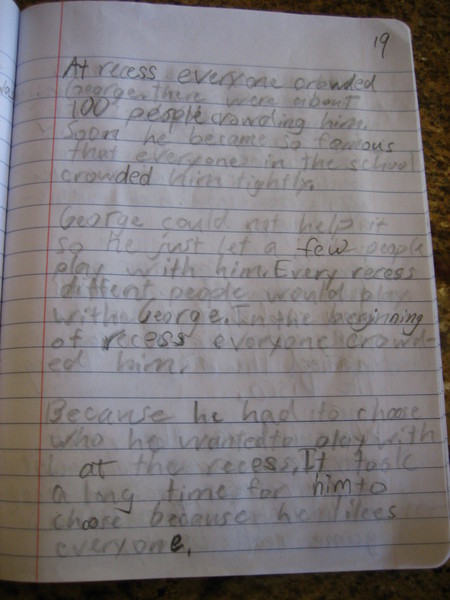 19
At recess everyone crowded
George. there were about
100 people crowding him.
Soon he became so famous
that everyone in the school
crowded him tightly.
George could not help it
so he just let a few people
play with him. Every recess
different people would play
with George. In the beginning
of recess everyone crowd-
ed him.
Because he had to choose
who he wanted to play with
at the recess. It took
a long time for him to
choose because he likes
everyone.